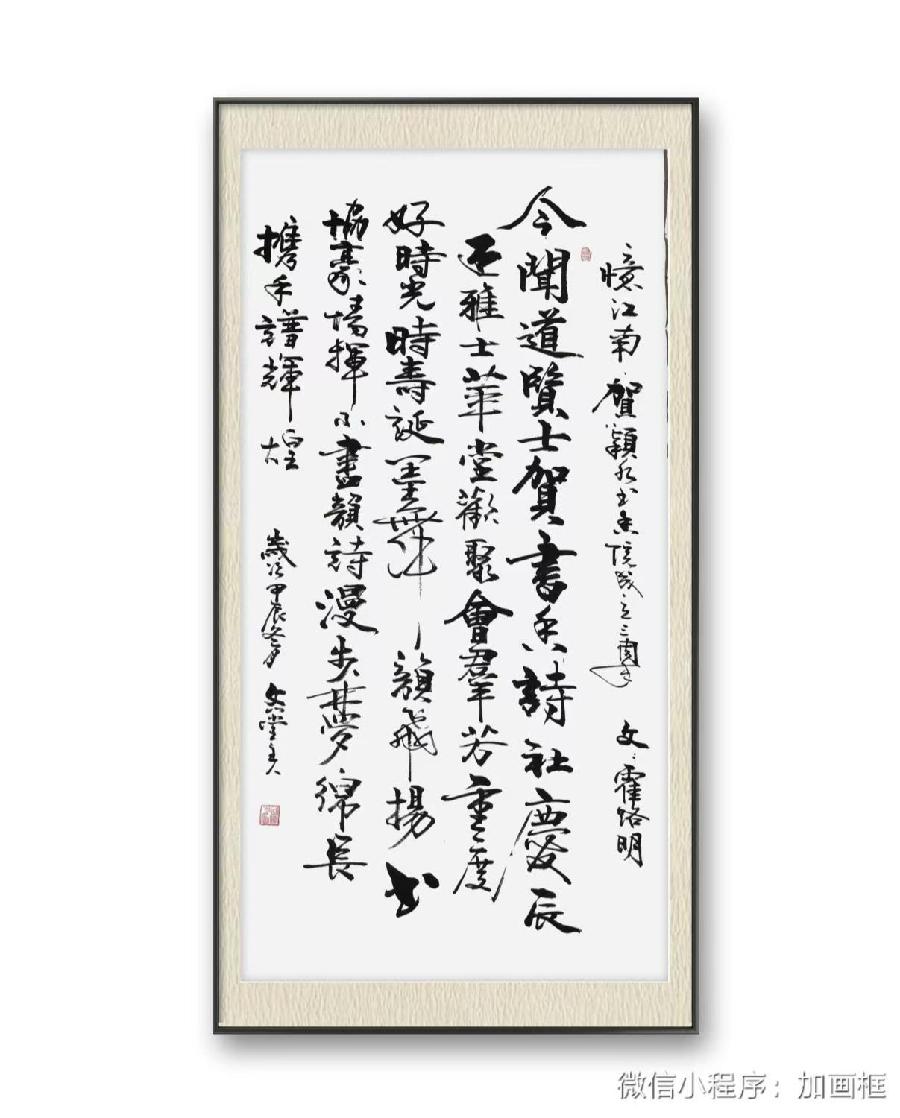 憶江南·賀穎水书香院成立三周年 文·霍 明
今聞道賢士賀書香詩社慶辰
雅士華堂歡聚會羣芳重度
好時光時壽誕墨舞韻飛揚书
協豪情揮不 韻詩漫步夢綿長
攜手譜輝煌 歲次甲辰冬 堂主人
微信小程序：加画框